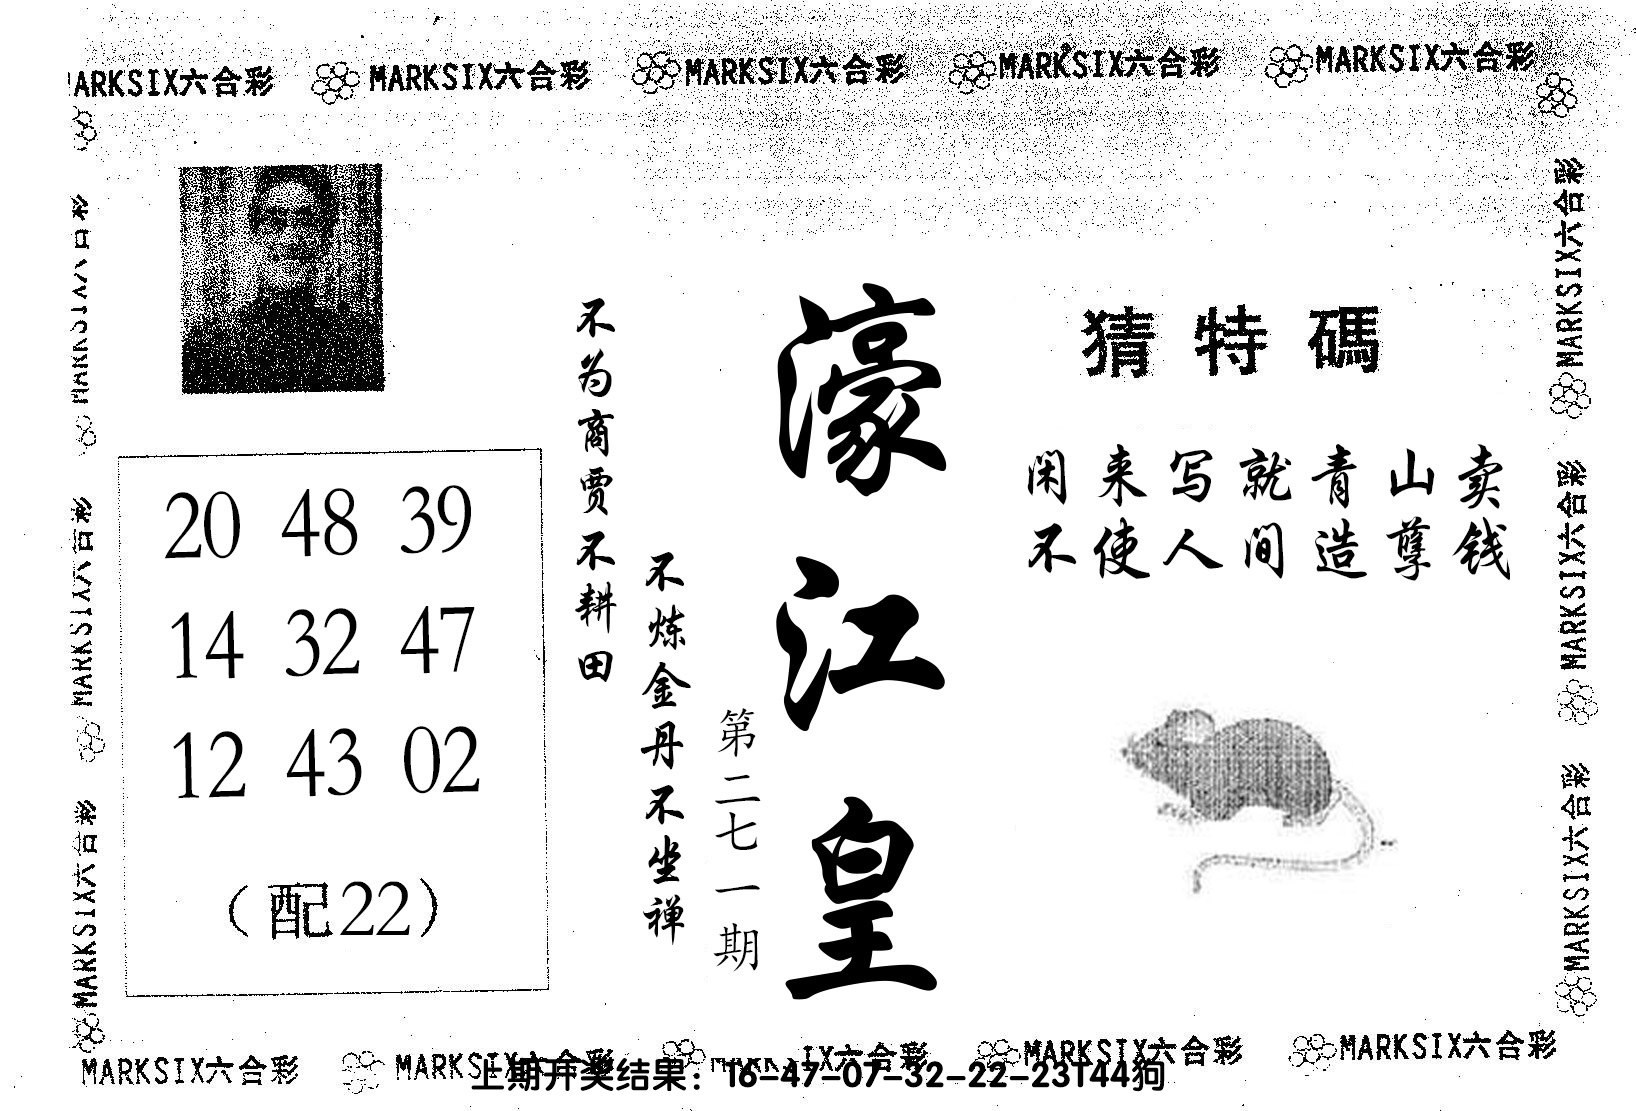 MARKSIX六合彩 MARKSIX六合彩 MARKSIX六合彩 MARKSIX六合彩 MARKSIX六合彩
猜特碼
闲来写就青山卖
不使人间造孽钱
濠江皇
第二七一期
不炼金丹不坐禅
不为商贾不耕田
20 48 39
14 32 47
12 43 02
（配22）
MARKSIX六合彩 MARKSIX六合彩 MARKSIX六合彩
MARKSIX六合彩 MARKSIX六合彩 MARKSIX六合彩
MARKSIX六合彩 MARKSIX六合彩 MARKSIX六合彩 MARKSIX六合彩 MARKSIX六合彩
上期开奖结果：16-47-07-32-22-23T44狗